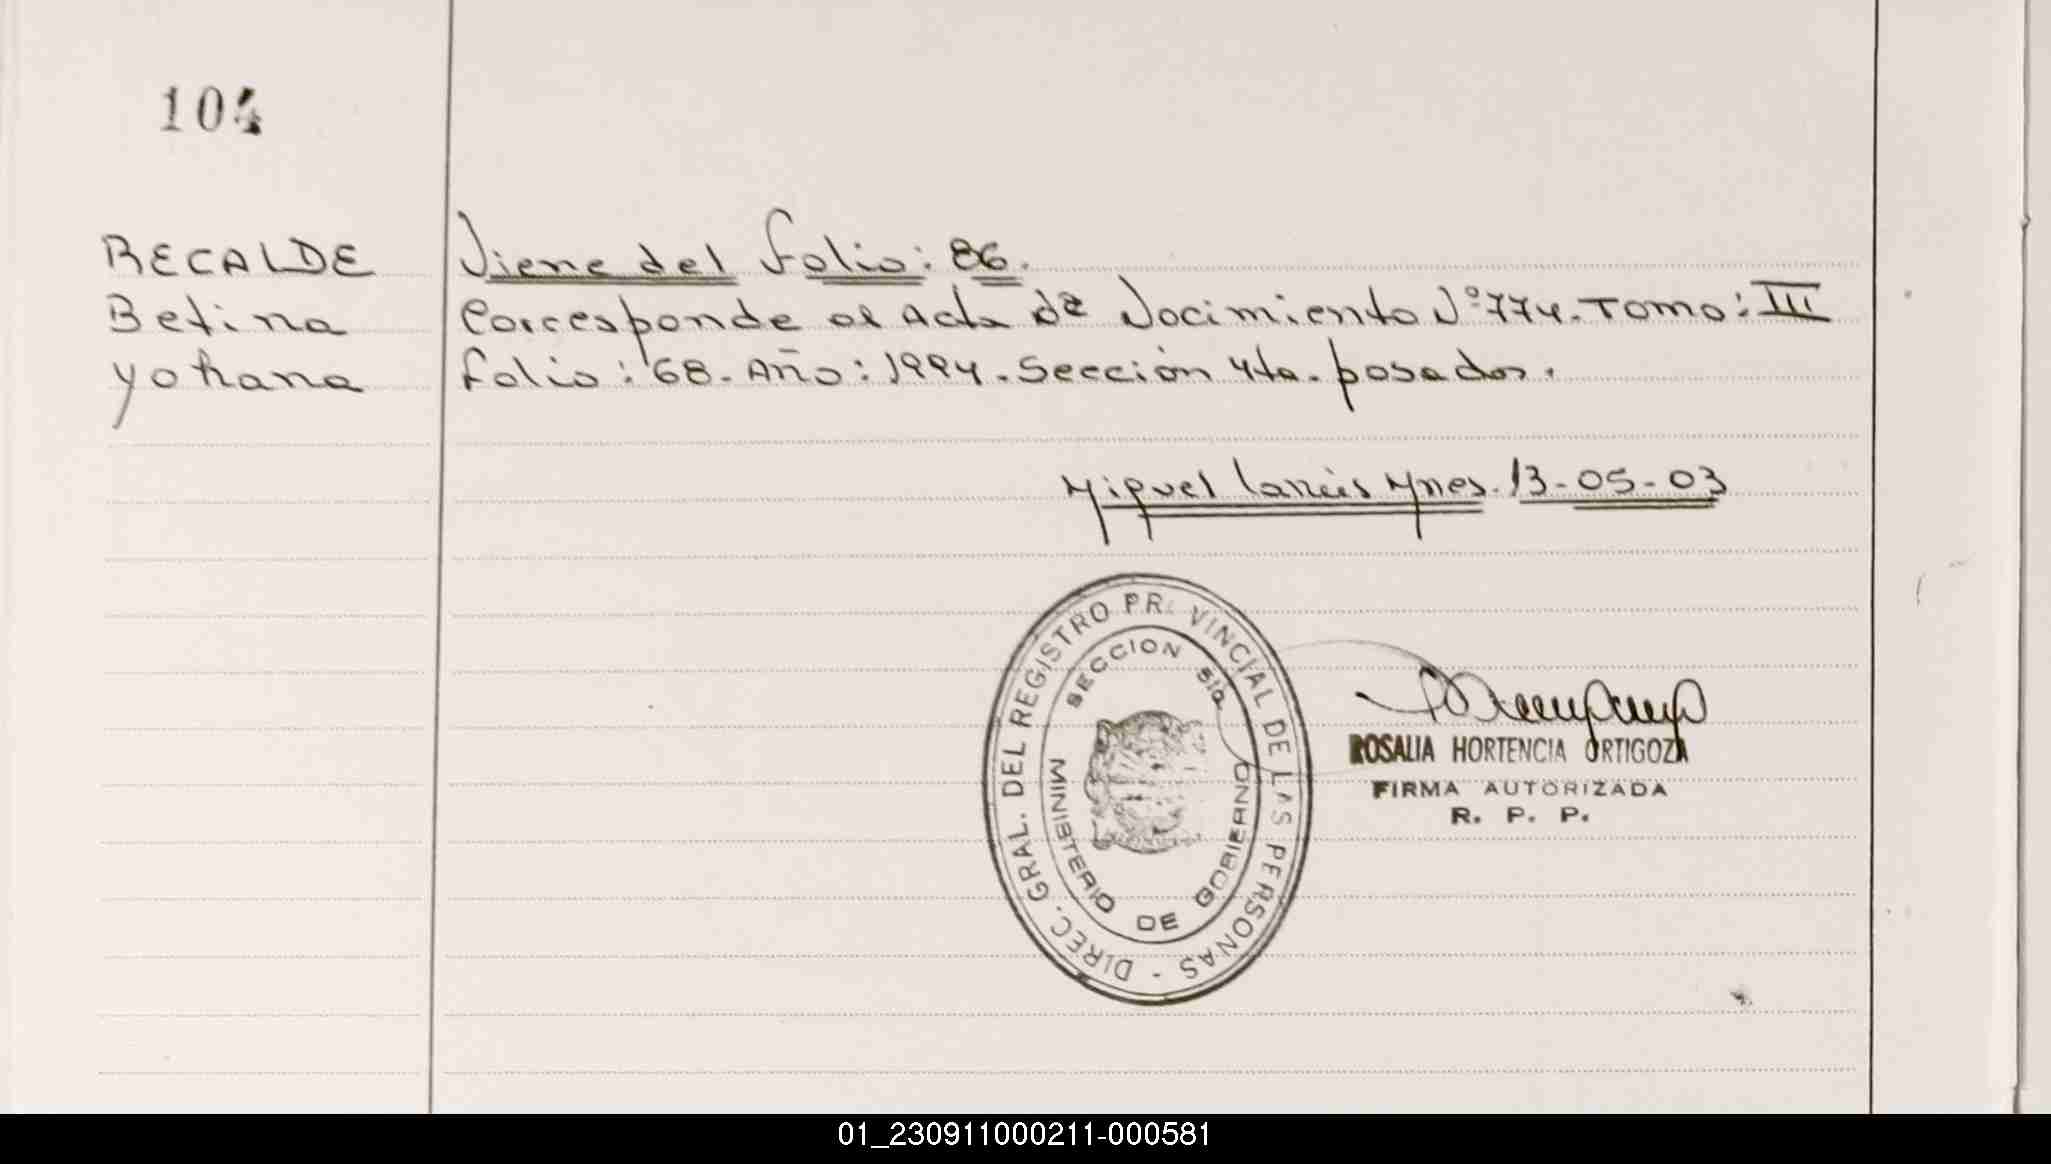 104
RECALDE
Betina
yohana
Viene del folio: 86.
Corresponde al Acta de Nacimiento Nº 774. Tomo: III
folio: 68. Año: 1994. Sección 4ta. pasados.
Miguel Ynes. 13-05-03
DIREC. GRAL. DEL REGISTRO PR VINCIAL DE LAS PERSONAS -
SECCION 5ta
MINISTERIO DE GOBIERNO
ROSALIA HORTENCIA ORTIGOZA
FIRMA AUTORIZADA
R. P. P.
01_230911000211-000581